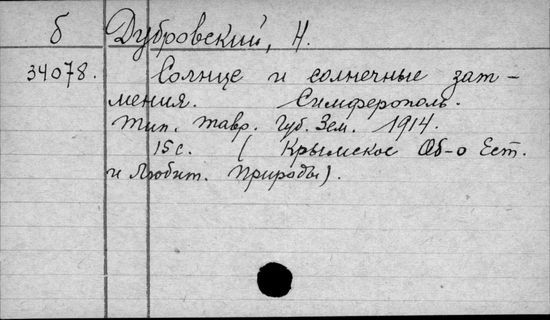 б Дубровский, Н.
34078. Солнце и солнечные зат-
мения. Симферополь.
Тип. Тавр. Губ. Зем. 1914.
15 с. (Крымское Об-о Ест.
и Любит. Природы).